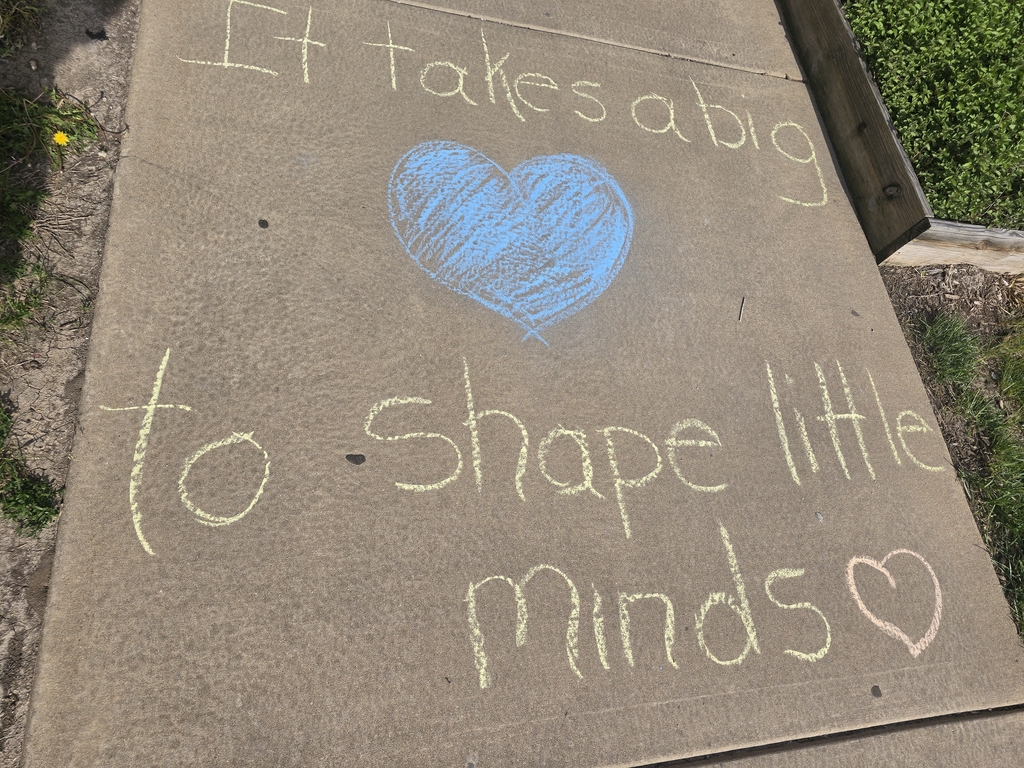 It takes a big
to shape little
minds